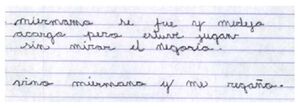 miermama se fue y medejo
acargo pero estuve jugan
sin mirar el negocio.
vino miermano y me regaño.